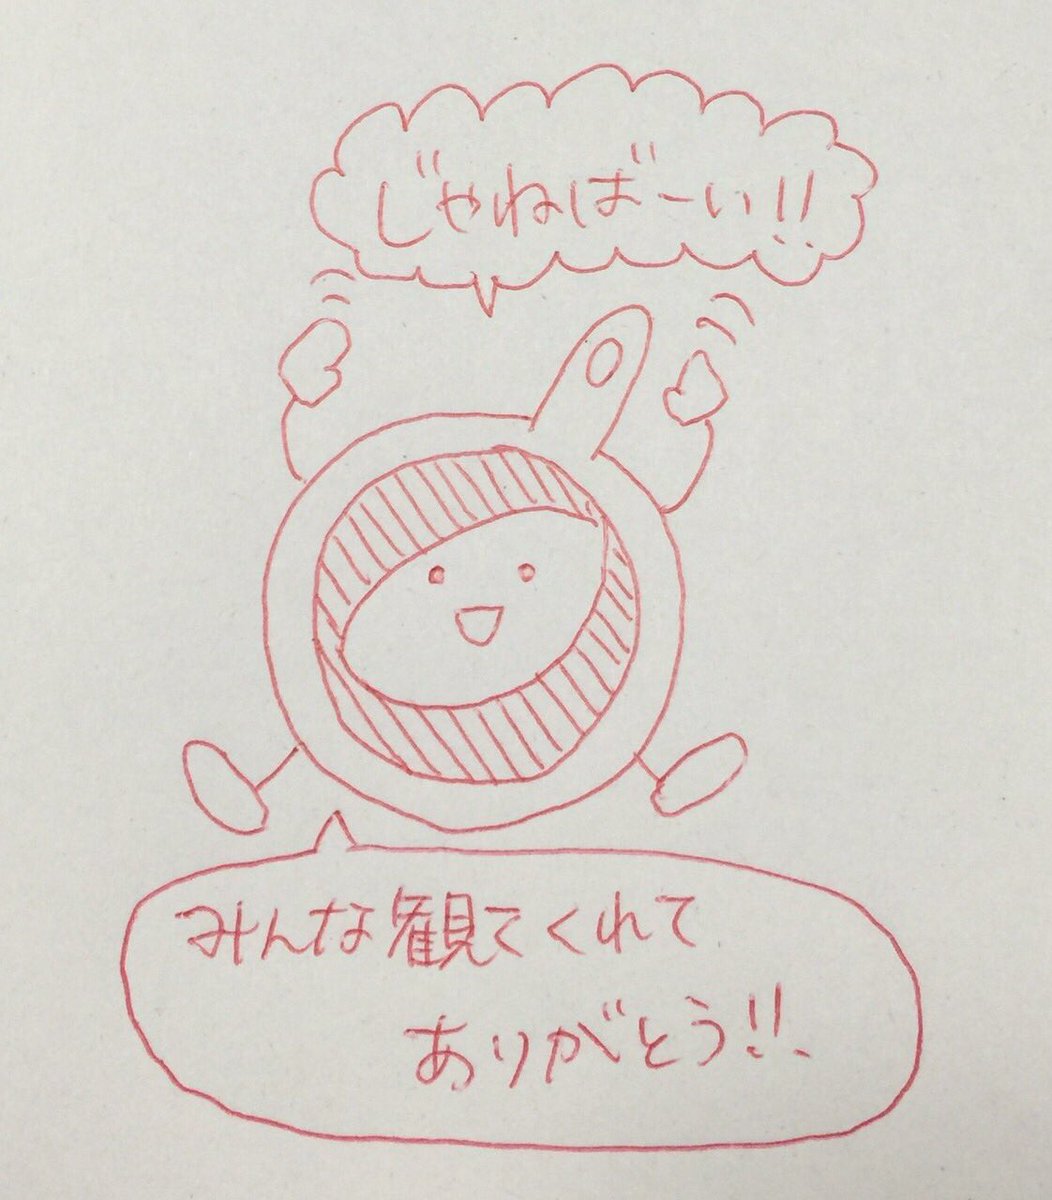 じゃねばーい!!
みんな観てくれて
ありがとう!!